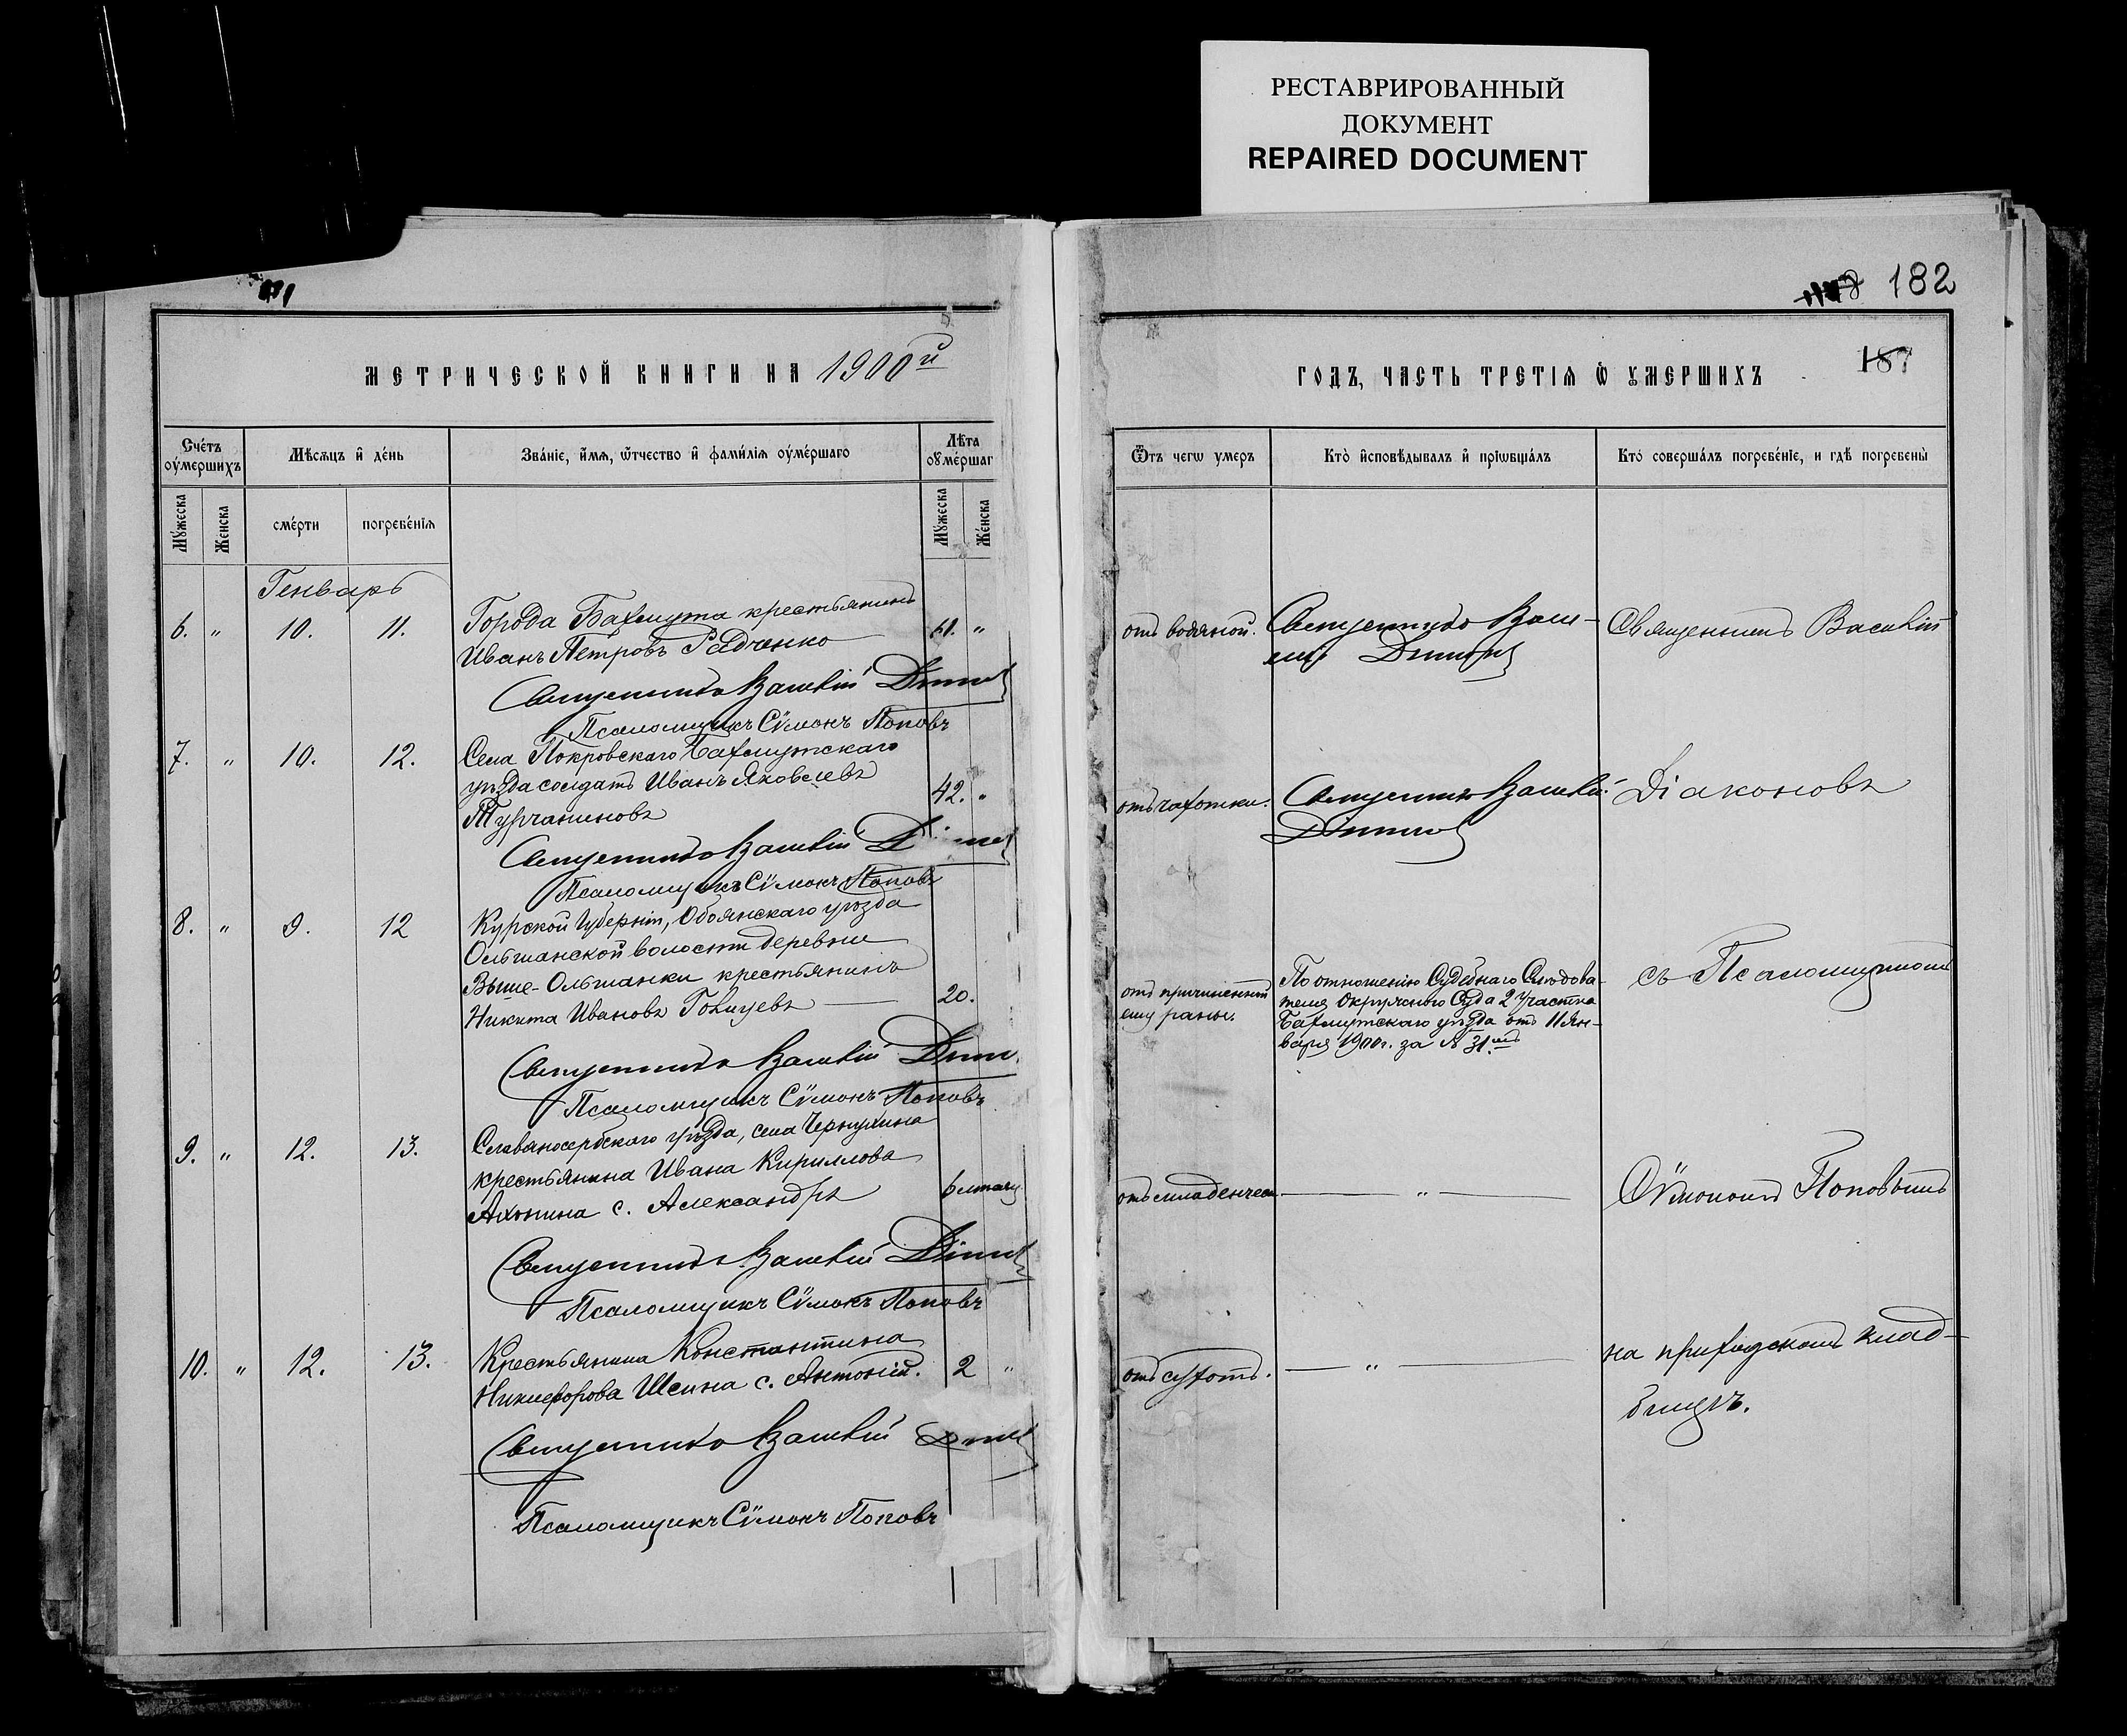 РЕСТАВРИРОВАННЫЙ
ДОКУМЕНТ
REPAIRED DOCUMENT
182
МЕТРИЧЕСКОЙ КНИГИ НА 1900й
Счéтъ ѹ́мершихъ
Мѣсяцъ и҆ дéнь
Звáнїе, и҆́мя, ѿчество и҆ фами́лїя ѹ́мéршаго
Лѣта ѹмéршаг
Мꙋ́жеска
Же́нска
сме́рти
погребéнїя
Мꙋ́жеска
Же́нска
Генварь
6. " 10. 11.
Города Бахмута крестьянинъ
Иванъ Петровъ Радченко
61. "
Священникъ Василій
Псаломщикъ Сѵмонъ Поповъ
7. " 10. 12.
Села Покровскаго Бахмутскаго
уѣзда солдатъ Иванъ Яковлевъ
Турчаниновъ
42. "
Священникъ Василій
Псаломщикъ Сѵмонъ Поповъ
8. " 9. 12
Курской Губерніи, Обоянскаго уѣзда
Ольшанской волости деревни
Выше-Ольшанки крестьянинъ
Никита Ивановъ
20.
Священникъ Василій
Псаломщикъ Сѵмонъ Поповъ
9. " 12. 13.
Славяносербскаго уѣзда, села Чернухина
крестьянина Ивана Кириллова
с. Александръ
Священникъ Василій
Псаломщикъ Сѵмонъ Поповъ
10. " 12. 13.
Крестьянина Константина
Никифорова Шеина с. Антоній.
2 "
Священникъ Василій
Псаломщикъ Сѵмонъ Поповъ
187
ГОДЪ, ЧАСТЬ ТРЕТІЯ Ѡ ОУМЕРШИХЪ
Ѿъ чегѡ умеръ
Кто̀ и҆сповѣ́дывалъ и҆ прїѡбщáлъ
Кто́ совершáлъ погребéнїе, и гдѣ погребены̀
отъ водяной.
Священникъ Васи-
лій
Священникъ Василій
отъ чахотки.
Священникъ Василій
Діаконовъ
отъ причиненной
ему раны.
По отношенію Судебнаго Слѣдова-
теля Окружного Суда 2 Участка
Бахмутскаго уѣзда отъ 11 Ян-
варя 1900г. за № 31.мъ
съ Псаломщикомъ
отъ младенческ.
"
Сѵмономъ Поповымъ
отъ сухотъ.
"
на приходскомъ клад-
бищѣ.